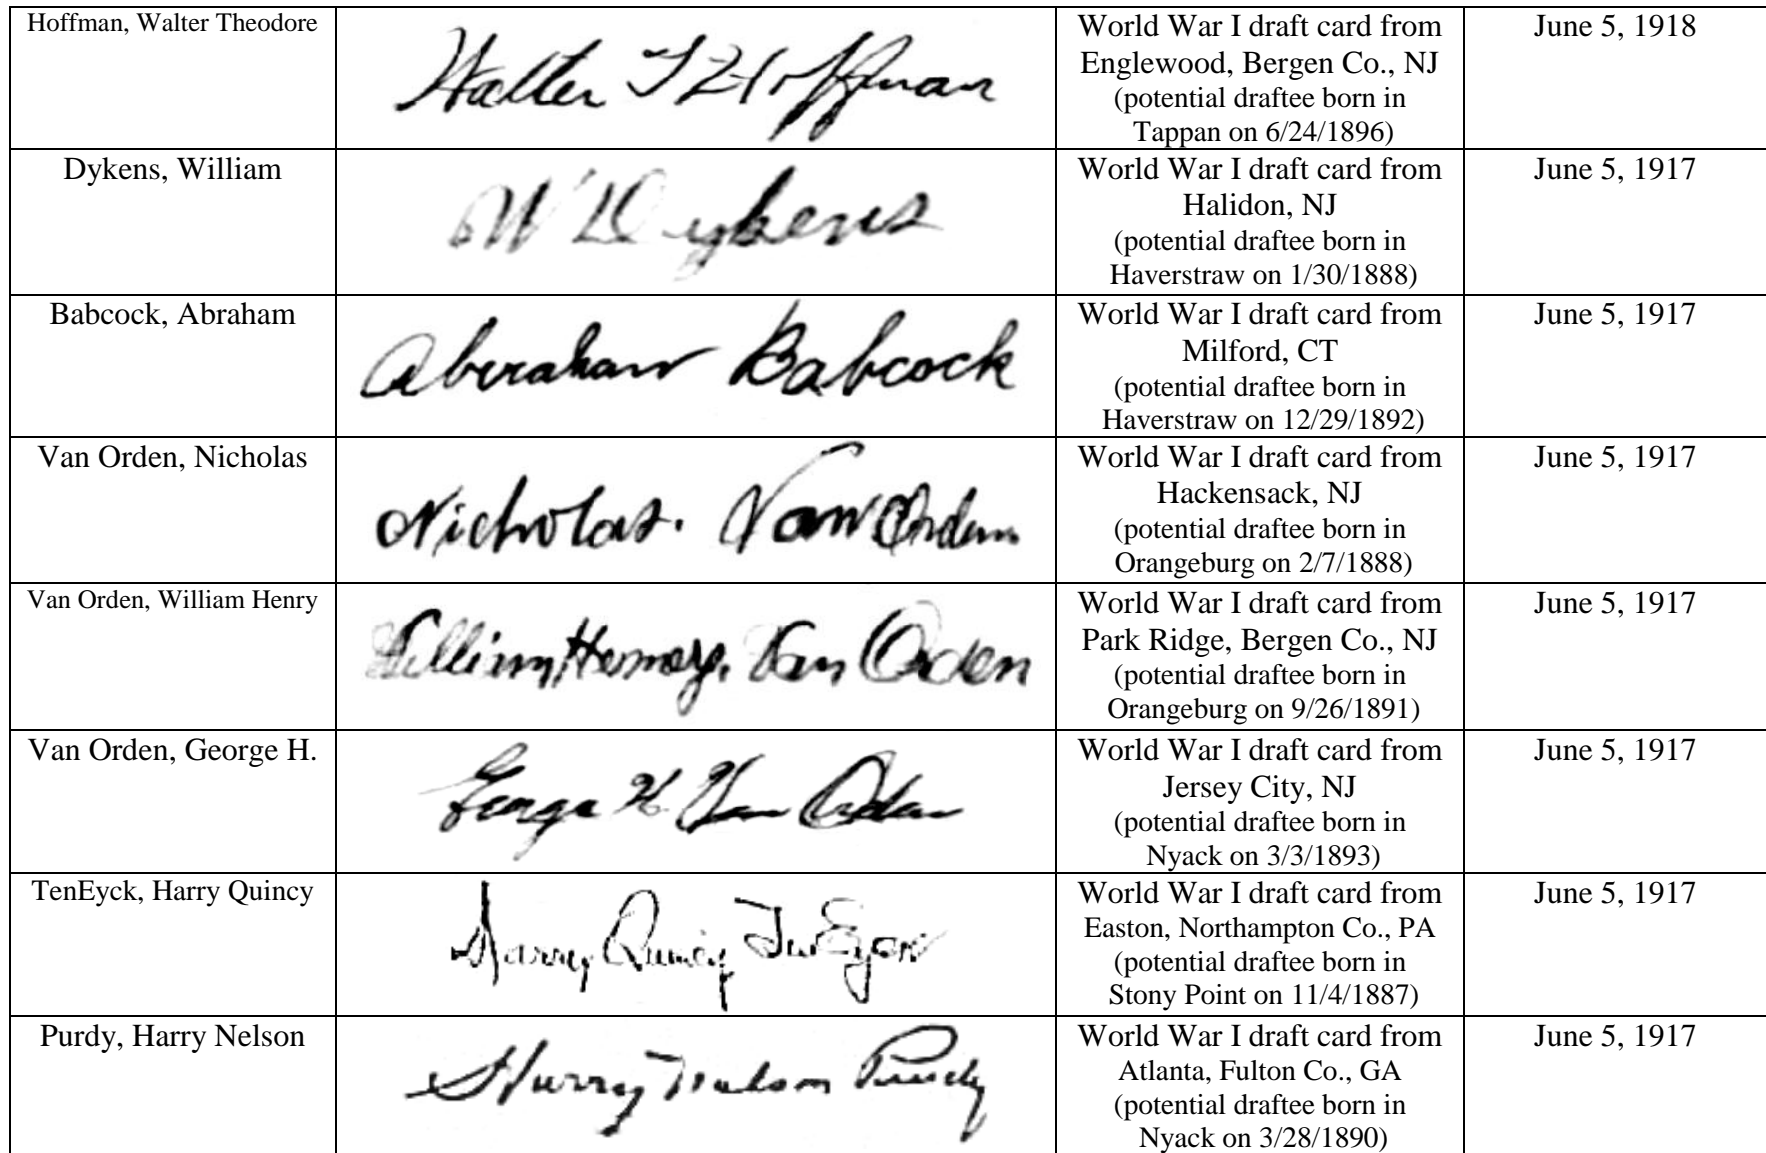 Hoffman, Walter Theodore
Walter T Hoffman
World War I draft card from
Englewood, Bergen Co., NJ
(potential draftee born in
Tappan on 6/24/1896)
June 5, 1918
Dykens, William
W Dykens
World War I draft card from
Halidon, NJ
(potential draftee born in
Haverstraw on 1/30/1888)
June 5, 1917
Babcock, Abraham
Aberaham Babcock
World War I draft card from
Milford, CT
(potential draftee born in
Haverstraw on 12/29/1892)
June 5, 1917
Van Orden, Nicholas
Nicholas. Van Orden
World War I draft card from
Hackensack, NJ
(potential draftee born in
Orangeburg on 2/7/1888)
June 5, 1917
Van Orden, William Henry
William Henery. Van Orden
World War I draft card from
Park Ridge, Bergen Co., NJ
(potential draftee born in
Orangeburg on 9/26/1891)
June 5, 1917
Van Orden, George H.
George H. Van Orden
World War I draft card from
Jersey City, NJ
(potential draftee born in
Nyack on 3/3/1893)
June 5, 1917
TenEyck, Harry Quincy
Harry Quincy TenEyck
World War I draft card from
Easton, Northampton Co., PA
(potential draftee born in
Stony Point on 11/4/1887)
June 5, 1917
Purdy, Harry Nelson
Harry Nelson Purdy
World War I draft card from
Atlanta, Fulton Co., GA
(potential draftee born in
Nyack on 3/28/1890)
June 5, 1917